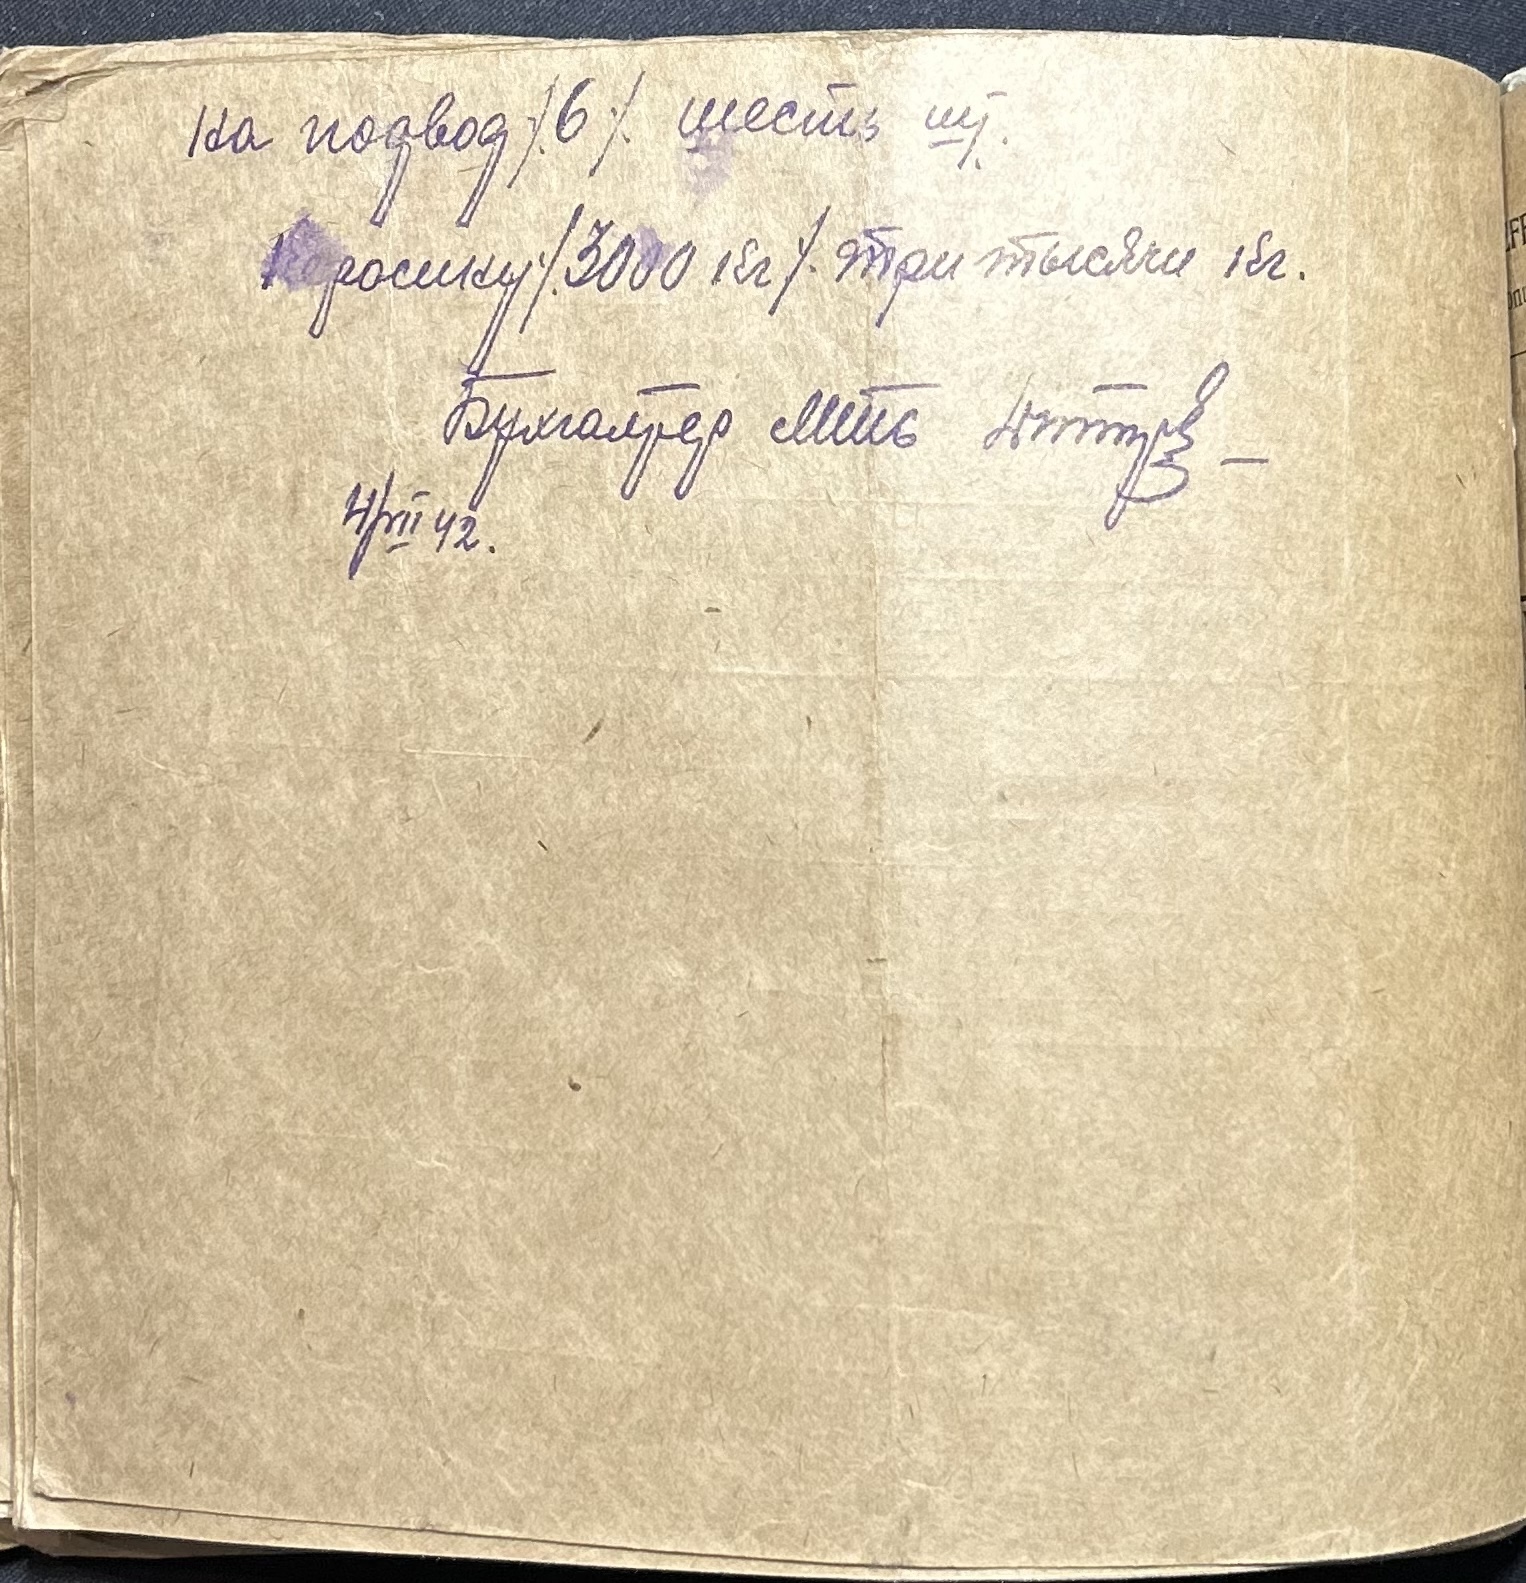 на подвод /6/. шесть шт.
Керосину /3000 кг/. три тысячи кг.
Бухгалтер МТС
4/VII 42.